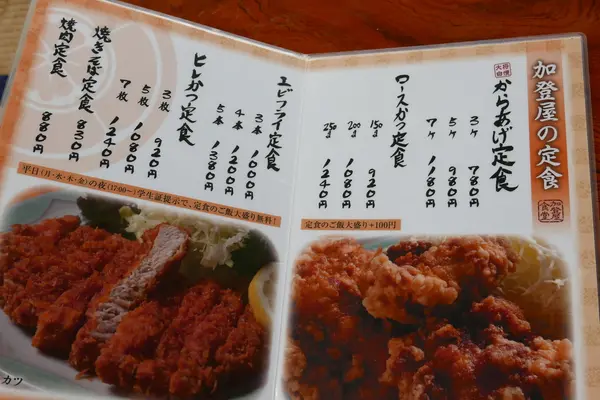 加登屋の定食
加登屋食堂
大将自慢
からあげ定食
3ケ 780円
5ケ 980円
7ケ 1180円
ロースかつ定食
150g 920円
200g 1080円
250g 1240円
定食のご飯大盛り+100円
エビフライ定食
3本 1000円
4本 1200円
5本 1380円
ヒレかつ定食
3枚 920円
5枚 1080円
7枚 1240円
焼きそば定食 830円
焼肉定食 880円
平日(月・水・木・金)の夜(17:00~)学生証提示で、定食のご飯大盛り無料!
カツ